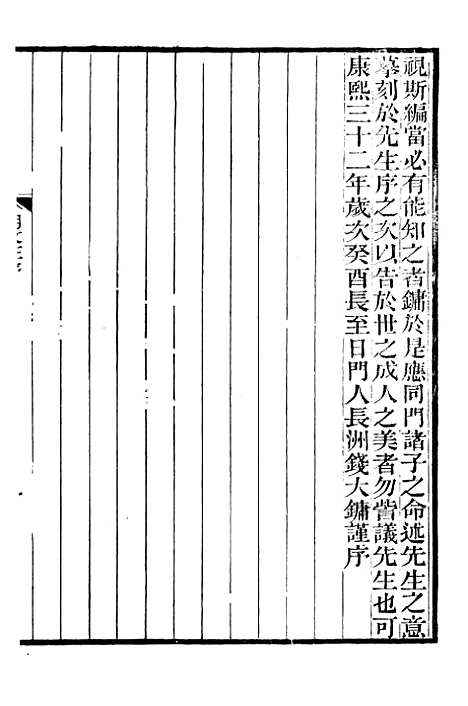 視斯編當必有能知之者鏞於是應同門諸子之命述先生之意
摹刻於先生序之次以告於世之成人之美者勿訾議先生也可
康熙三十二年歲次癸酉長至日門人長洲錢大鏞謹序